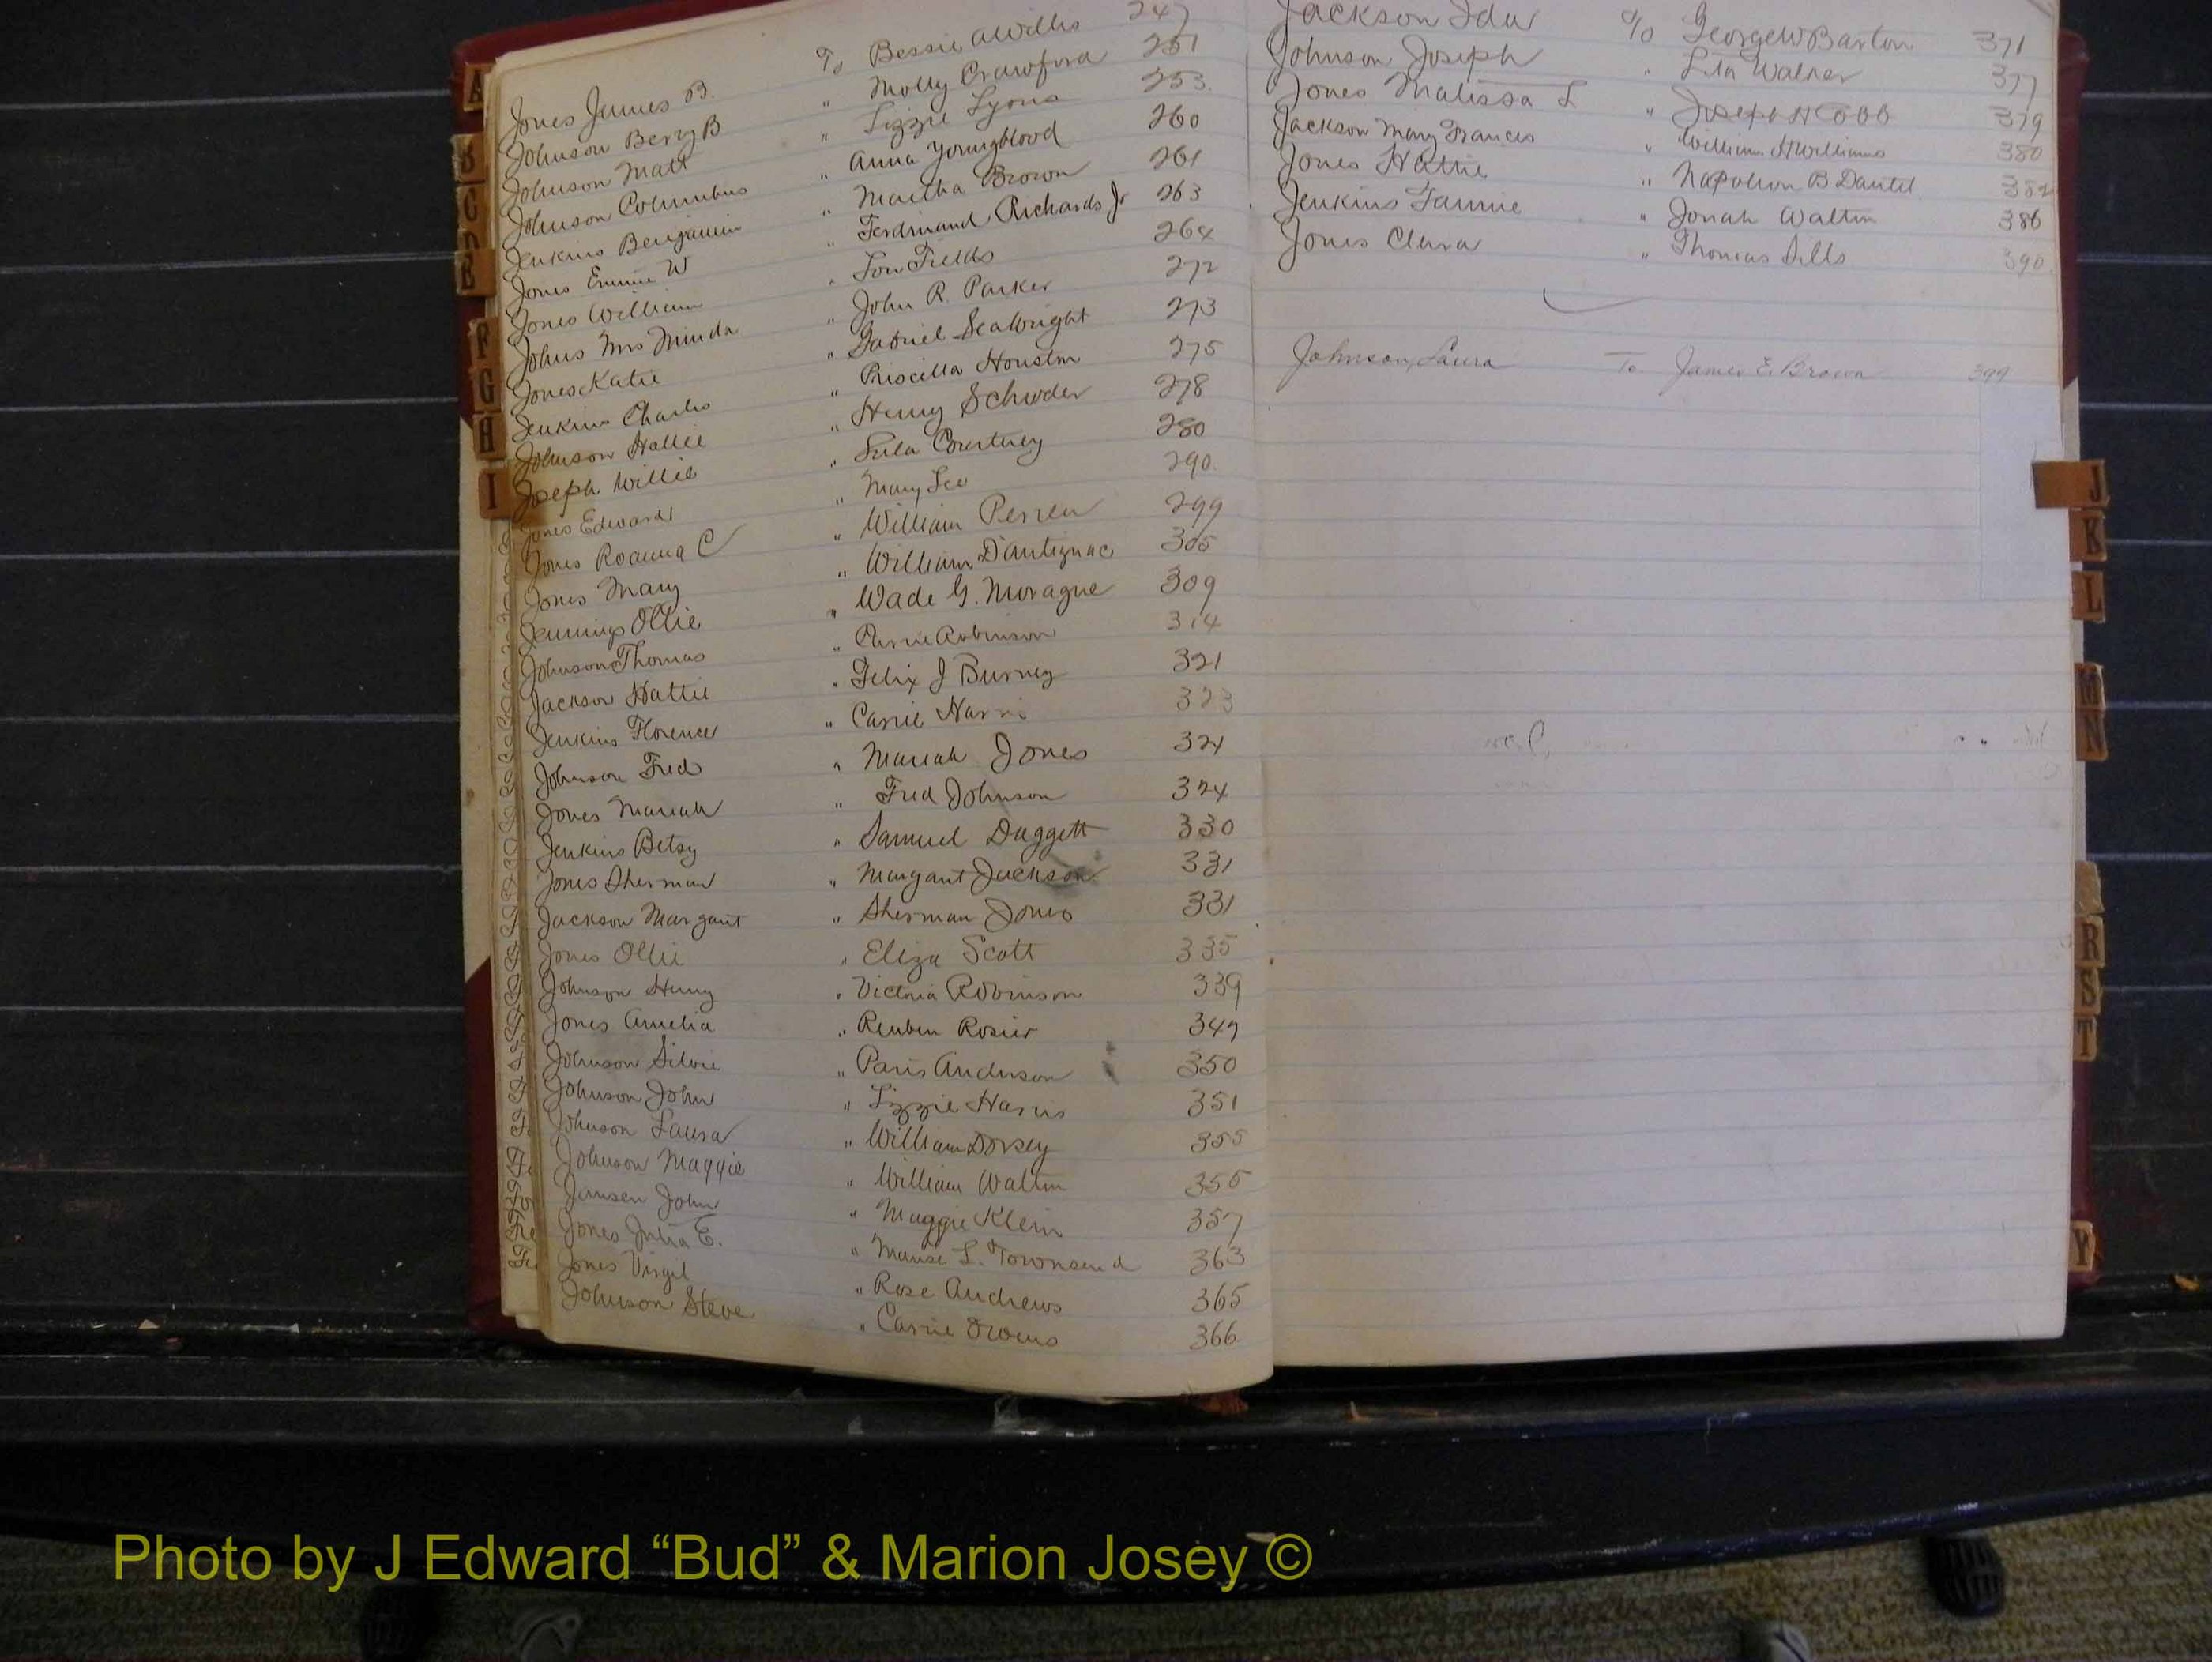 Jones James B. To Bessie A Willis 247
Johnson Berry B " Molly Crawford 251
Johnson Matt " Lizzie Lyons 253
Johnson Columbus " Anna Youngblood 260
Jenkins Benjamin " Martha Brown 261
Jones Emmie W " Ferdinand Richards Jr 263
Jones William " Lou Fields 264
Johns Mrs Minda " John R. Parker 272
Jones Katie " Gabriel Seabright 273
Jenkins Charles " Priscilla Houston 275
Johnson Hallie " Henry Schroder 278
Joseph Willie " Lula Courtney 280
Jones Edward " Mary Lee 290
Jones Roanna C " William Perren 299
Jones Mary " William D'Antignac 305
Jennings Ollie " Wade G. Moragne 309
Johnson Thomas " Carrie Robinson 314
Jackson Hattie " Felix J Burney 321
Jenkins Florence " Carrie Harris 323
Johnson Fred " Mariah Jones 324
Jones Mariah " Fred Johnson 324
Jenkins Betsy " Samuel Daggett 330
Jones Sherman " Margaret Jackson 331
Jackson Margaret " Sherman Jones 331
Jones Ollie " Eliza Scott 335
Johnson Henry " Victoria Robinson 339
Jones Amelia " Reuben Rosier 347
Johnson Silvie " Paris Anderson 350
Johnson John " Lizzie Harris 351
Johnson Laura " William Dorsey 355
Johnson Maggie " William Walton 355
Jansen John " Maggie Klein 357
Jones Julia E. " L. Townsend 363
Jones Virgil " Rose Andrews 365
Johnson Steve " Carrie Owens 366
Jackson Ida To George W Barton 371
Johnson Joseph " Walker 377
Jones Malissa L " Joseph H Cobb 379
Jackson Mary Frances " William H Williams 380
Jones Hattie " Napoleon B Daniel 382
Jenkins Fannie " Jonah Walton 386
Jones Clara " Thomas Dills 390
Johnson, Laura To James E. Brown 399
A
B
C
D
E
F
G
H
I
J
K
L
M
N
R
S
T
Y
Photo by J Edward “Bud” & Marion Josey ©